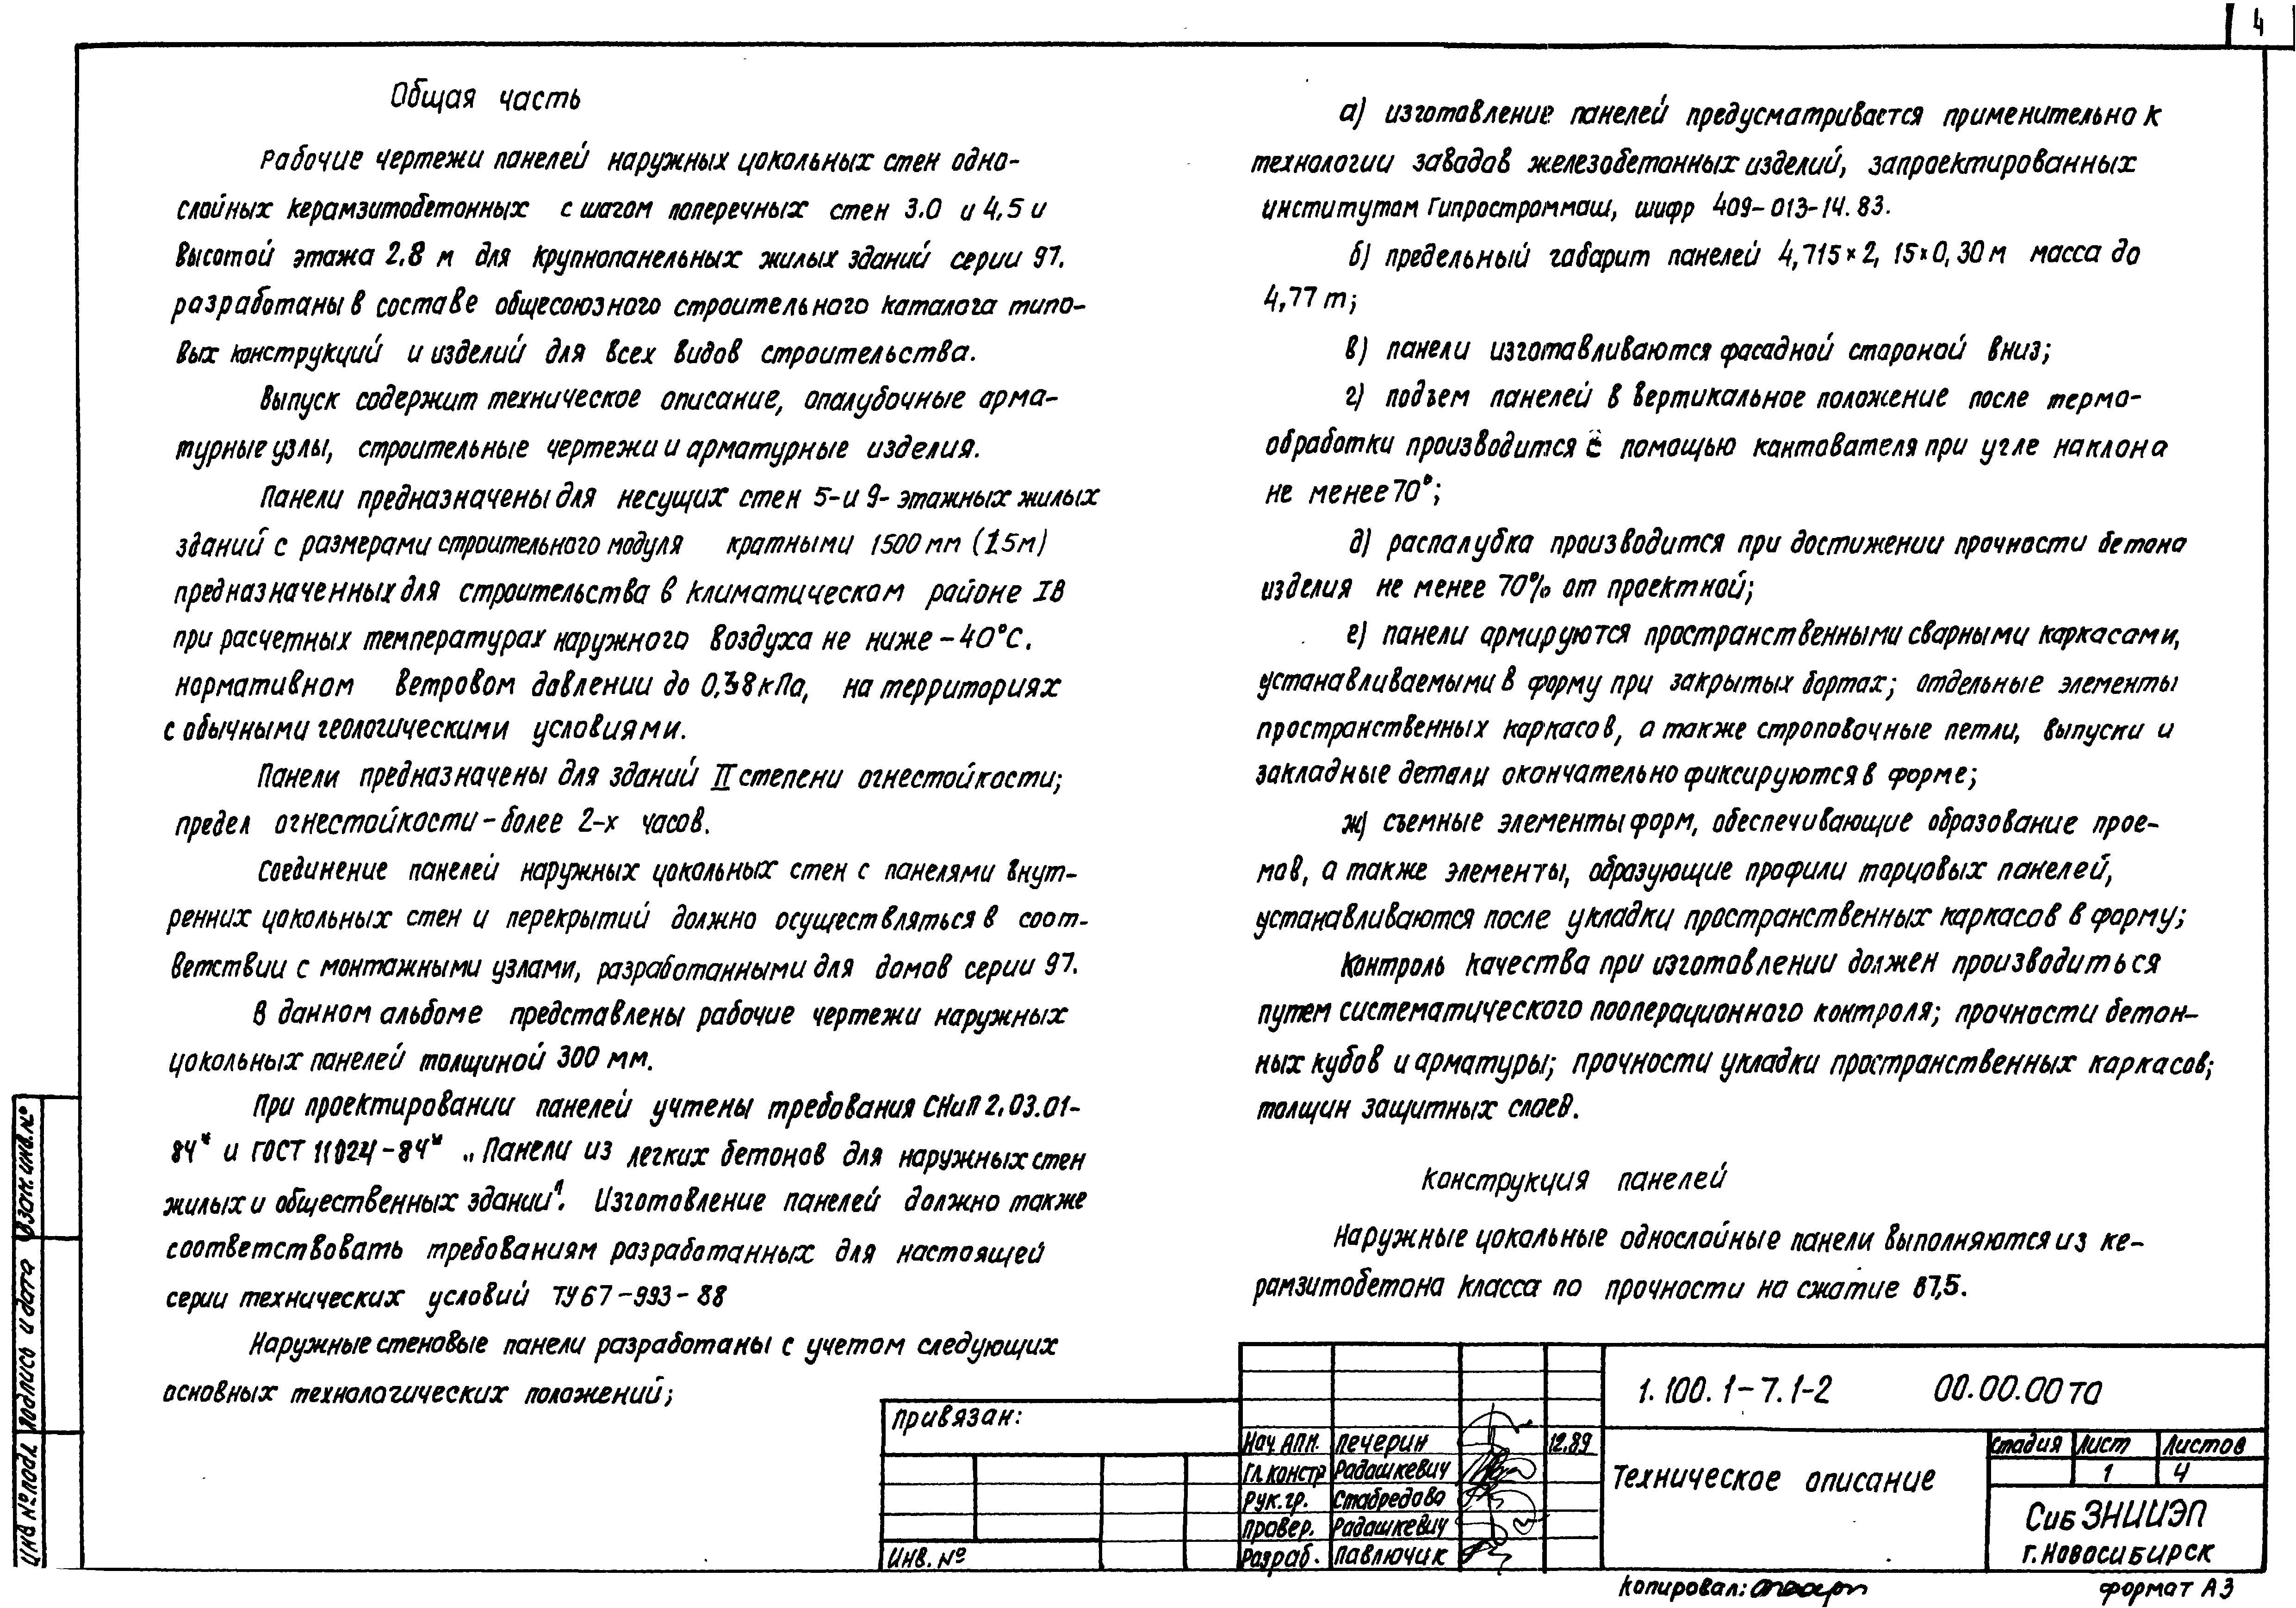 4
Общая часть
Рабочие чертежи панелей наружных цокольных стен одно-
слойных керамзитобетонных с шагом поперечных стен 3.0 и 4,5 и
высотой этажа 2.8 м для крупнопанельных жилых зданий серии 97.
разработаны в составе общесоюзного строительного каталога типо-
вых конструкций и изделий для всех видов строительства.
Выпуск содержит техническое описание, опалубочные арма-
турные узлы, строительные чертежи и арматурные изделия.
Панели предназначены для несущих стен 5-и 9-этажных жилых
зданий с размерами строительного модуля кратными 1500 мм (1.5м)
предназначенных для строительства в климатическом районе IВ
при расчетных температурах наружного воздуха не ниже -40°С.
нормативном ветровом давлении до 0,38 кПа, на территориях
с обычными геологическими условиями.
Панели предназначены для зданий II степени огнестойкости;
предел огнестойкости - более 2-х часов.
Соединение панелей наружных цокольных стен с панелями внут-
ренних цокольных стен и перекрытий должно осуществляться в соот-
ветствии с монтажными узлами, разработанными для домов серии 97.
В данном альбоме представлены рабочие чертежи наружных
цокольных панелей толщиной 300 мм.
При проектировании панелей учтены требования СНиП 2.03.01-
84* и ГОСТ 11024-84* „Панели из легких бетонов для наружных стен
жилых и общественных здании". Изготовление панелей должно также
соответствовать требованиям разработанных для настоящей
серии технических условий ТУ 67-993-88
Наружные стеновые панели разработаны с учетом следующих
основных технологических положений;
а) изготовление панелей предусматривается применительно к
технологии заводов железобетонных изделий, запроектированных
институтом Гипростроммаш, шифр 409-013-14.83.
б) предельный габарит панелей 4,715×2,15×0,30 м масса до
4,77 т;
в) панели изготавливаются фасадной стороной вниз;
г) подъем панелей в вертикальное положение после термо-
обработки производится с помощью кантователя при угле наклона
не менее 70°;
д) распалубка производится при достижении прочности бетона
изделия не менее 70% от проектной;
е) панели армируются пространственными сварными каркасами,
устанавливаемыми в форму при закрытых бортах; отдельные элементы
пространственных каркасов, а также строповочные петли, выпуски и
закладные детали окончательно фиксируются в форме;
ж) съемные элементы форм, обеспечивающие образование прое-
мов, а также элементы, образующие профили торцовых панелей,
устанавливаются после укладки пространственных каркасов в форму;
Контроль качества при изготовлении должен производиться
путем систематического пооперационного контроля; прочности бетон-
ных кубов и арматуры; прочности укладки пространственных каркасов;
толщин защитных слоев.
Конструкция панелей
Наружные цокольные однослойные панели выполняются из ке-
рамзитобетона класса по прочности на сжатие В7,5.
Взам. инв. №
Подпись и дата
Инв № подл.
Привязан:
Инв. №
Нач. АПМ. Печерин 12.89
Гл. констр Радашкевич
Рук. гр. Стабредова
Провер. Радашкевич
Разраб. Павлючик
1.100.1-7.1-2 00.00.00 ТО
Техническое описание
Стадия Лист Листов
1 4
СибЗНИИЭП
г. Новосибирск
Копировал:
формат А3